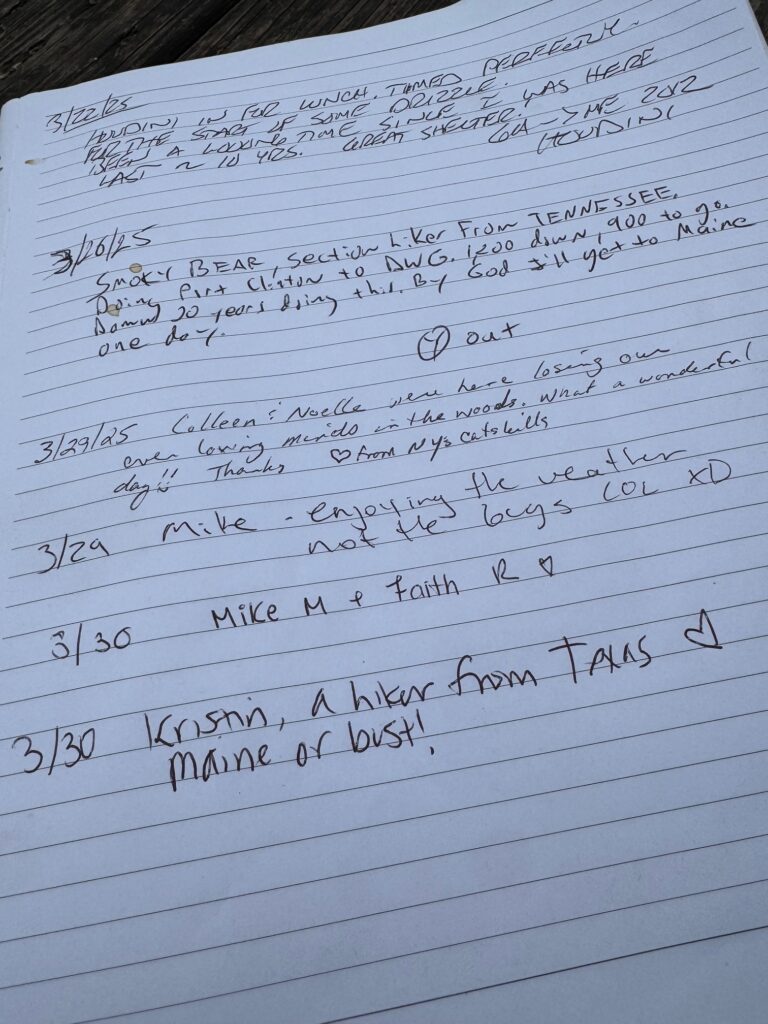 3/22/25
HOUDINI IN FOR LUNCH. TIMED PERFECTLY
FOR THE START OF SOME DRIZZLE.
BEEN A LOOONG TIME SINCE I WAS HERE
LAST ~ 10 YRS. GREAT SHELTER.
GA -> ME 2012
HOUDINI
3/26/25
SMOKY BEAR, section hiker From TENNESSEE.
Doing Port Clinton to DWG. 1200 down, 900 to go.
Damn 20 years doing this. By God I'll get to Maine
one day.
out
3/29/25 Colleen & Noelle were here losing our
ever loving minds in the woods. What a wonderful
day!! Thanks ♡ from NYs Catskills
3/29 Mike - enjoying the weather
not the bugs LOL XD
3/30 Mike M + Faith R ♡
3/30 Kristin, a hiker from Texas ♡
Maine or bust!